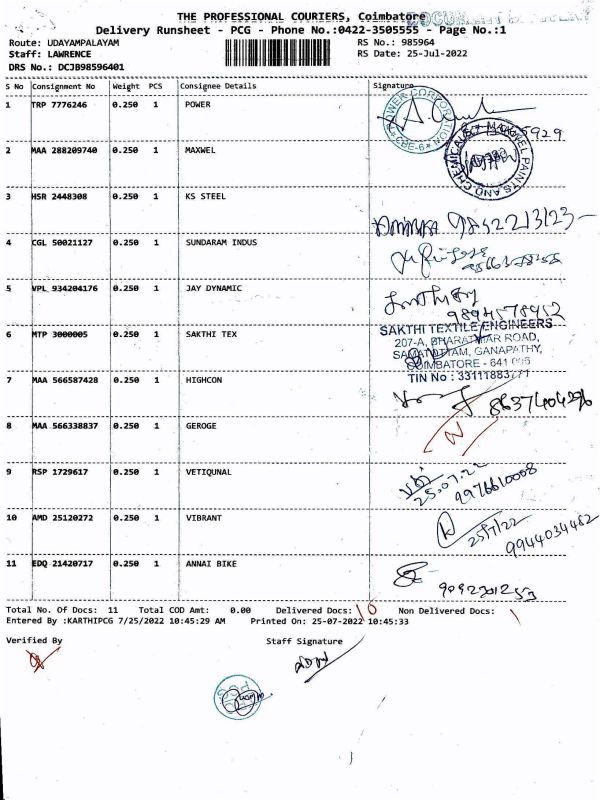 THE PROFESSIONAL COURIERS, Coimbatore
Delivery Runsheet - PCG - Phone No.:0422-3505555 - Page No.:1
Route: UDAYAMPALAYAM RS No.: 985964
Staff: LAWRENCE RS Date: 25-Jul-2022
DRS No.: DCJB98596401
S No Consignment No Weight PCS Consignee Details Signature
1 TRP 7776246 0.250 1 POWER
POWER CORPORATION
CBE-6
2 MAA 288209740 0.250 1 MAXWEL
MAXWEL PAINTS AND CHEMICALS
3 HSR 2448308 0.250 1 KS STEEL
9852213123
4 CGL 50021127 0.250 1 SUNDARAM INDUS
5 VPL 934204176 0.250 1 JAY DYNAMIC
9894578952
6 MTP 3000005 0.250 1 SAKTHI TEX
SAKTHI TEXTILE ENGINEERS
207-A, BHARATHIAR ROAD,
GANAPATHY,
COIMBATORE - 641
TIN No : 33111883
7 MAA 566587428 0.250 1 HIGHCON
8637404296
8 MAA 566338837 0.250 1 GEROGE
N
9 RSP 1729617 0.250 1 VETIQUNAL
25.07.22
9976610008
10 AMD 25120272 0.250 1 VIBRANT
25/7/22
9944034482
11 EDQ 21420717 0.250 1 ANNAI BIKE
9092301253
Total No. Of Docs: 11 Total COD Amt: 0.00 Delivered Docs: 10 Non Delivered Docs: 1
Entered By :KARTHIPCG 7/25/2022 10:45:29 AM Printed On: 25-07-2022 10:45:33
Verified By Staff Signature